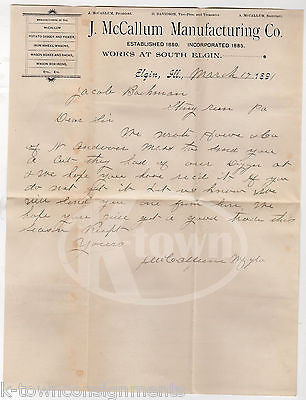 MANUFACTURERS OF THE
McCALLUM
POTATO DIGGER AND PICKER,
IRON WHEEL WAGONS,
WAGON BOXES AND RACKS,
WAGON BOX IRONS,
Etc., Etc.
J. McCALLUM, President.
D. DAVIDSON, Vice-Pres. and Treasurer
A. McCALLUM, Secretary.
J. McCallum Manufacturing Co.
ESTABLISHED 1880. INCORPORATED 1885.
WORKS AT SOUTH ELGIN.
Elgin, Ill., March 17 1891
Jacob Bachman
Run Pa
Dear Sir
We wrote Howe & Co
of N Andover Mass to send you
a Cut they had of our Digger
& We hope you have recd it if you
do not get it let us know & we
will send you one from here. We
hope you will get a good trade this
season
Yours
J McCallum Mfg Co
K-town
CONSIGNMENTS
k-townconsignments
k-townconsignments